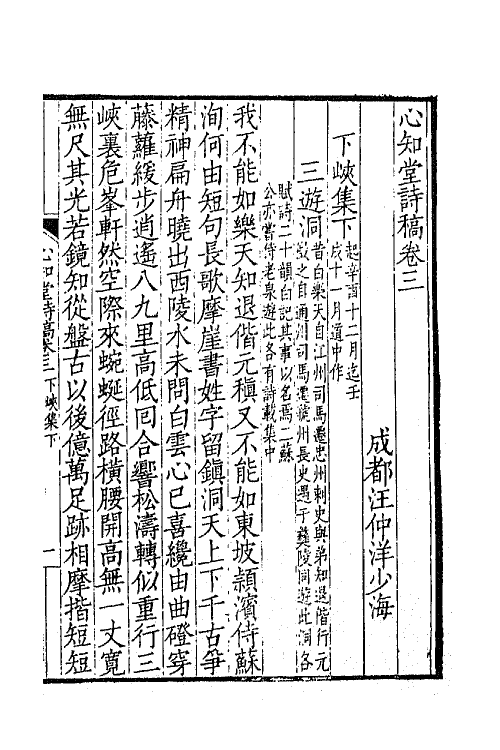 心知堂詩稿卷三
成都汪仲洋少海
下峽集下
起辛酉十二月迄壬
戌十一月道中作
三遊洞
昔白樂天自江州司馬遷忠州刺史與弟知退偕行元
微之自通州司馬遷虢州長史遇于彝陵同遊此洞各
賦詩二十韻白記其事以名焉二蘇
公亦嘗侍老泉遊此各有詩載集中
我不能如樂天知退偕元稹又不能如東坡潁濱侍蘇
洵何由短句長歌摩崖書姓字留鎮洞天上下千古爭
精神扁舟曉出西陵水未問白雲心已喜纔由曲磴穿
藤蘿緩步逍遙八九里高低囘合響松濤轉似重行三
峽裏危峯軒然空際來蜿蜒徑路橫腰開高無一丈寬
無尺其光若鏡知從盤古以後億萬足跡相摩揩短短
心知堂詩稿卷三 下峽集下
一